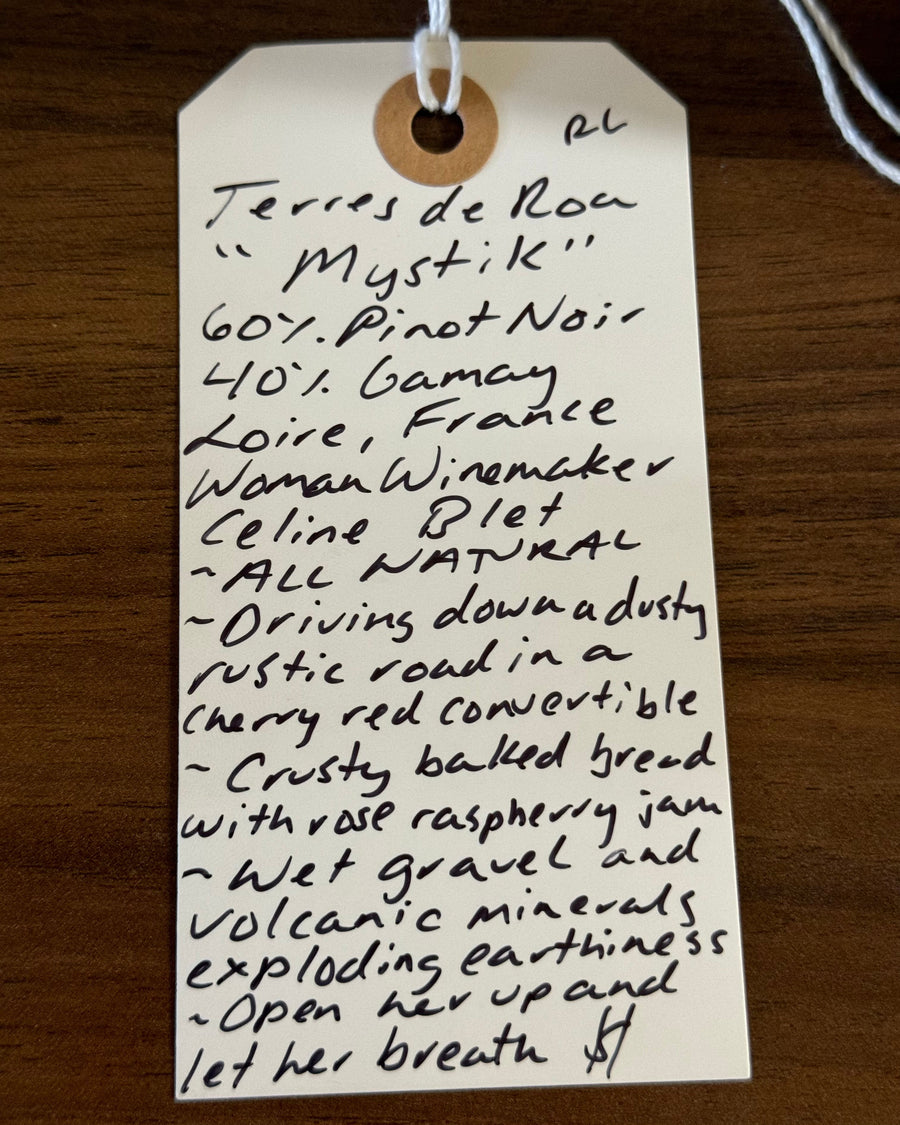 RL
Terres de Roa
"Mystik"
60% Pinot Noir
40% Gamay
Loire, France
Woman Winemaker
Celine Blet
~ALL NATURAL
~Driving down a dusty
rustic road in a
cherry red convertible
~Crusty baked bread
with rose raspberry jam
~Wet gravel and
volcanic minerals
exploding earthiness
~Open her up and
let her breath